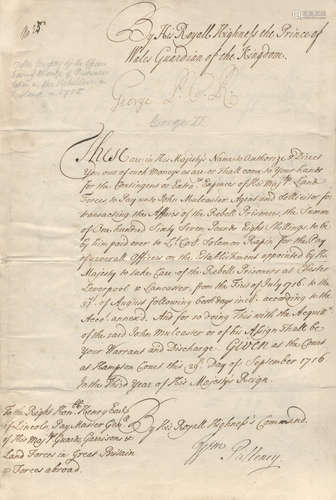 By His Royall Highness the Prince of
Wales Guardian of the Kingdom.
George P. C. R.
George II
These are in His Majestys Name to Authorize & Direct
You out of such Moneys as are or shall come to Your hands
for the Contingent or Extra Expences of His Majts Land
Forces to Pay unto John Mulcaster Agent and Sollicitor for
transacting the Affairs of the Rebell Prisoners, the Summ
of One hundred Sixty Seven Pounds Eight Shillings to be
by him paid over to Lt. Coll. Solomon Rapin for the Pay
of severall Officers on the Establishment appointed by his
Majesty to take Care of the Rebell Prisoners at Chester
Leverpoole & Lancaster, from the First of July 1716. to the
of August following both days incl. according to the
Acct. annexed. And for so doing This with the Acquittce
of the said John Mulcaster or of his Assigns Shall be
Your Warrant and Discharge. Given at the Court
at Hampton Court this day of September 1716
In the Third Year of His Majestys Reign.
To the Right Honble Henry Earle
of Lincoln, Pay Master Genll
of His Majts Guards, Garrisons &
Land Forces in Great Britain
& Forces abroad.
By His Royall Highness's Command.
Wm
Pulteney